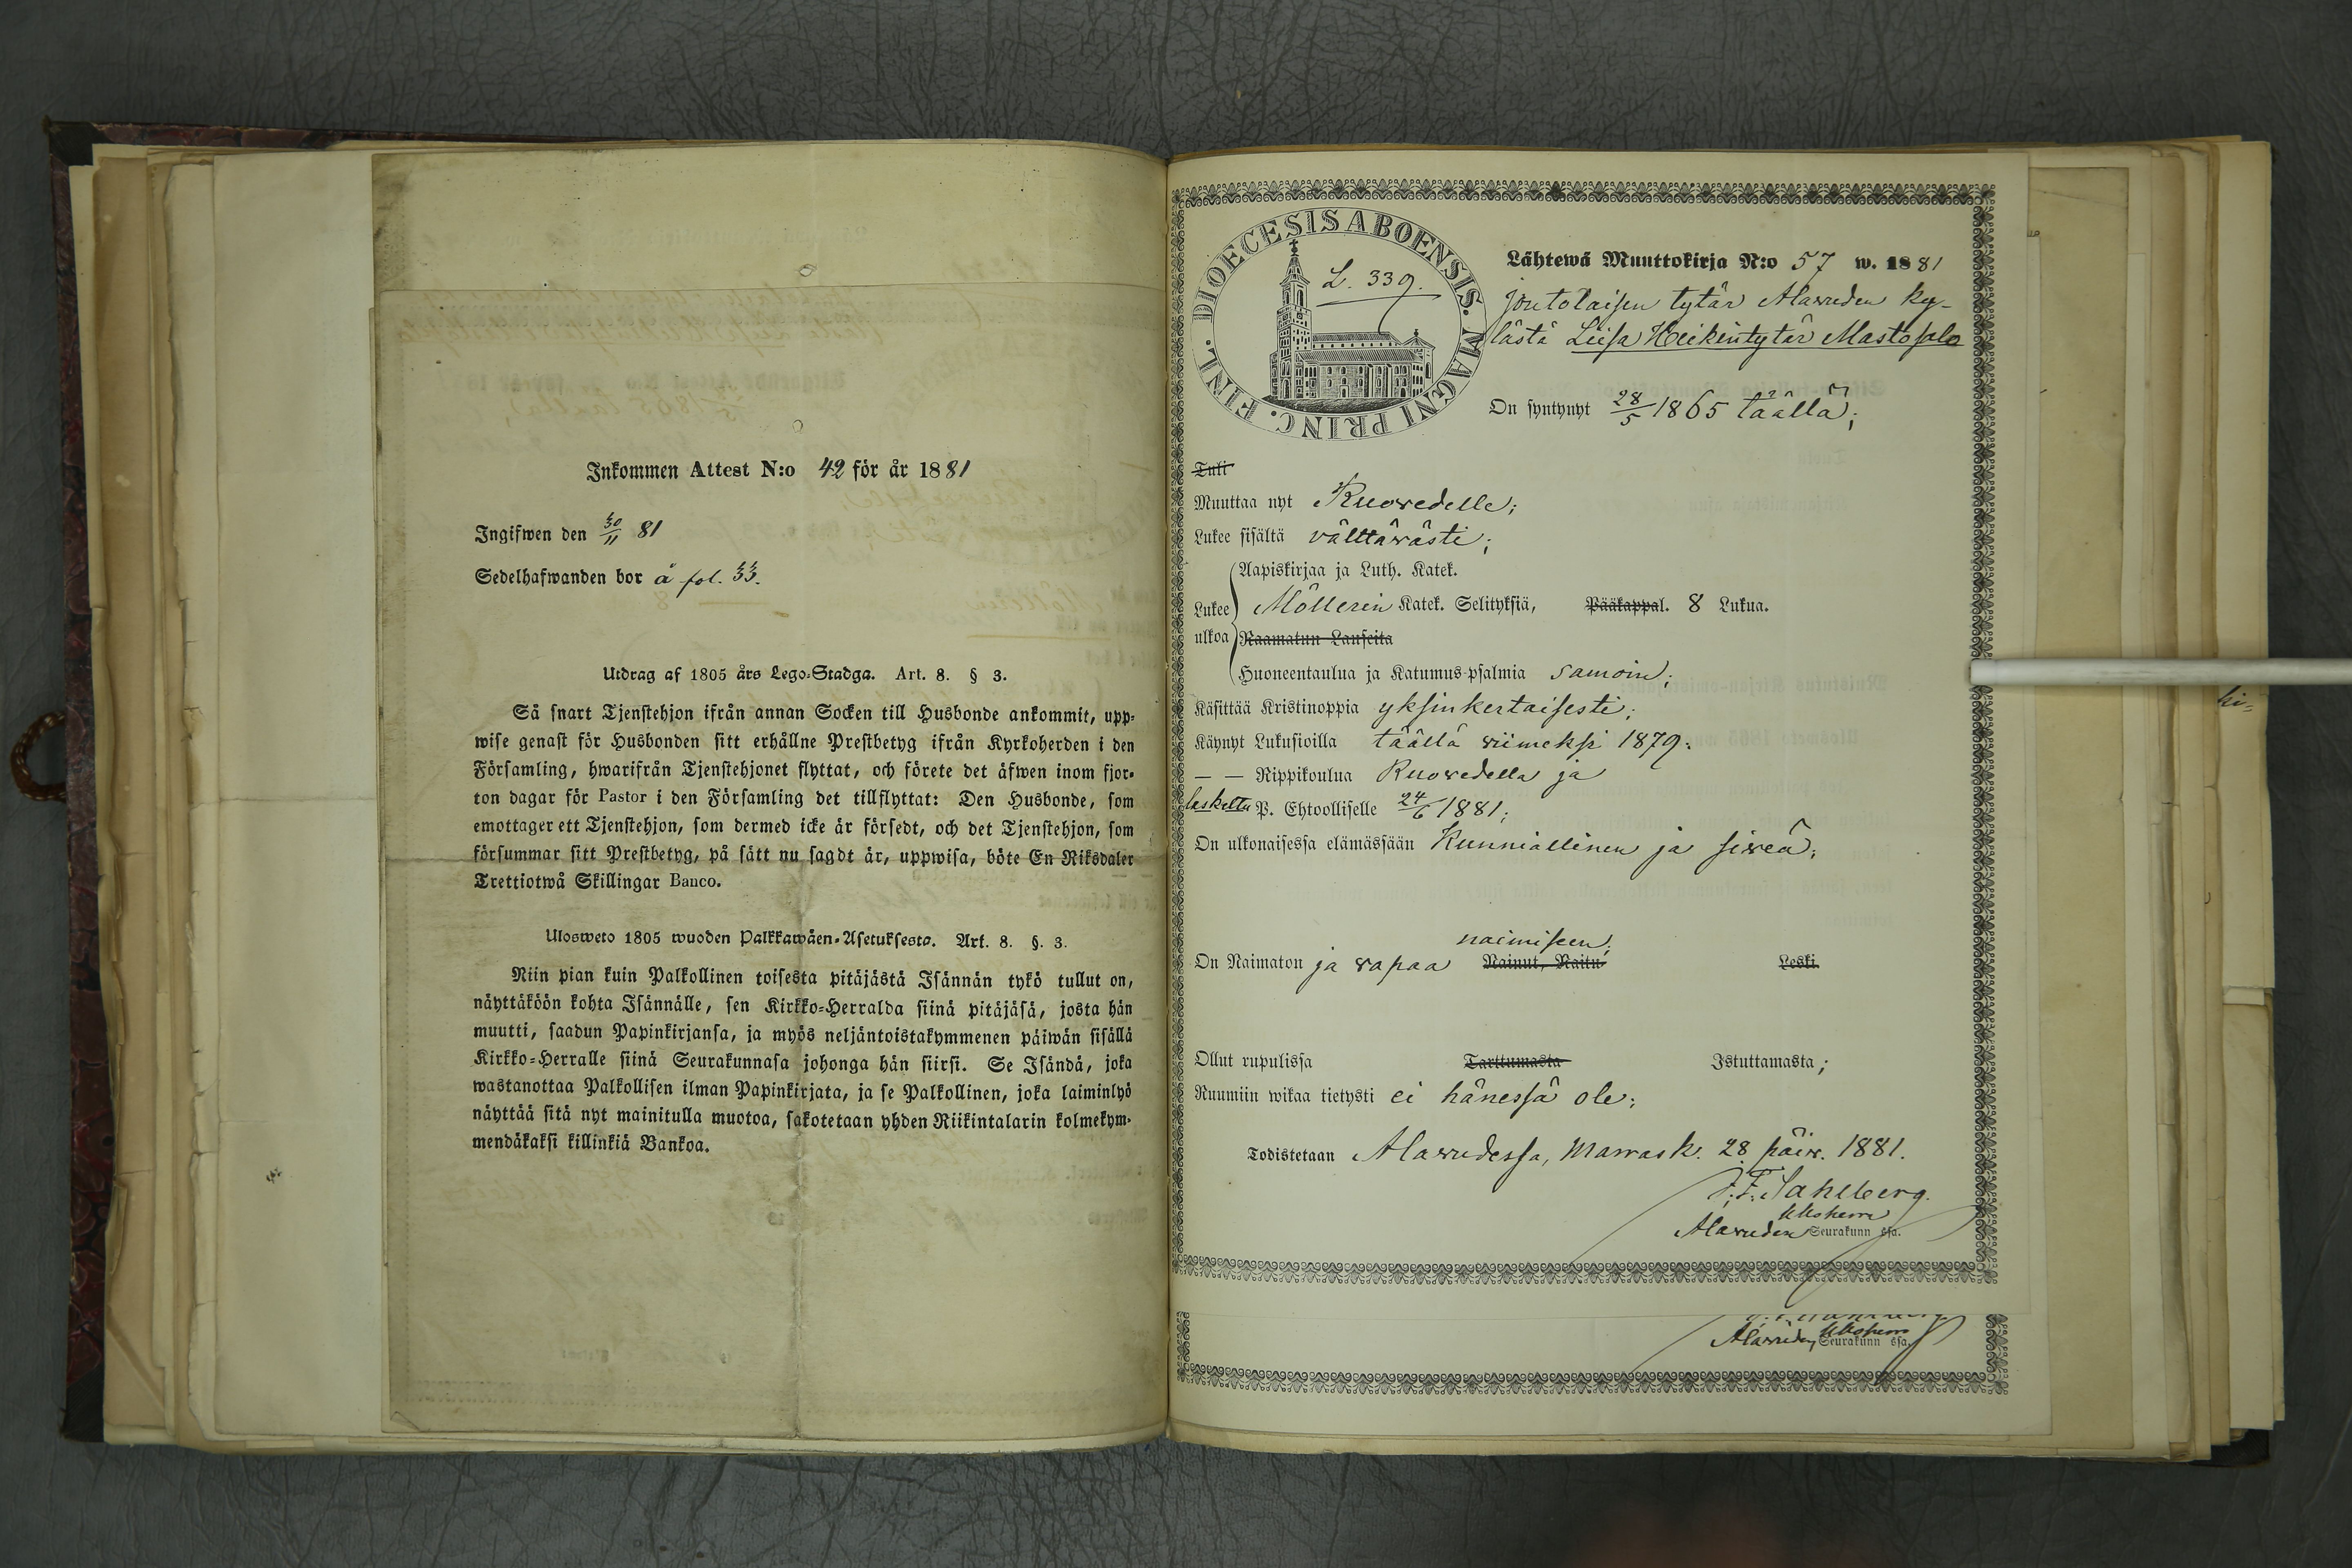 Inkommen Attest N:o 42 för år 1881
Ingifwen den 30/11 81
Sedelhafwanden bor å fol. 33.
Utdrag af 1805 års Lego-Stadga. Art. 8. § 3.
Så snart Tjenstehjon ifrån annan Socken till Husbonde ankommit, upp-
wise genast för Husbonden sitt erhållne Prestbetyg ifrån Kyrkoherden i den
Församling, hwarifrån Tjenstehjonet flyttat, och förete det äfwen inom fjor-
ton dagar för Pastor i den Församling det tillflyttat: Den Husbonde, som
emottager ett Tjenstehjon, som dermed icke är försedt, och det Tjenstehjon, som
försummar sitt Prestbetyg, på sätt nu sagdt är, uppwisa, böte En Riksdaler
Trettiotwå Skillingar Banco.
Ulosweto 1805 wuoden Palkkawäen-Asetuksesta. Art. 8. §. 3.
Niin pian kuin Palkollinen toisesta pitäjästä Isännän tykö tullut on,
näyttäköön kohta Isännälle, sen Kirkko-Herralda siinä pitäjäsä, josta hän
muutti, saadun Papinkirjansa, ja myös neljäntoistakymmenen päiwän sisällä
Kirkko-Herralle siinä Seurakunnasa johonga hän siirsi. Se Isändä, joka
wastanottaa Palkollisen ilman Papinkirjata, ja se Palkollinen, joka laiminlyö
näyttää sitä nyt mainitulla muotoa, sakotetaan yhden Riikintalarin kolmekym-
mendäkaksi killinkiä Bankoa.
DIOECESIS ABOENSIS. MAGNI PRINC. FINL.
L. 339.
Lähtewä Muuttokirja N:o 57 w. 1881
joutolaisen tytär Alawuden ky-
lästä Liisa Heikintytär Mastosalo
On syntynyt 28/5 1865 täällä;
Tuli
Muuttaa nyt Ruowedelle;
Lukee sisältä välttäwästi;
Aapiskirjaa ja Luth. Katek.
Lukee Möllerin Katek. Selityksiä, Pääkappal. 8 Lukua.
ulkoa Raamatun Lauseita
Huoneentaulua ja Katumus-psalmia samoin;
Käsittää Kristinoppia yksinkertaisesti;
Käynyt Lukusioilla täällä wiimeksi 1879;
— — Rippikoulua Ruowedellä ja
laskettu P. Ehtoolliselle 24/6 1881;
On ulkonaisessa elämässään Kunniallinen ja siweä;
naimiseen;
On Naimaton ja vapaa Nainut, Naitu, Leski.
Ollut rupulissa Tarttumasta Istuttamasta;
Ruumiin wikaa tietysti ei hänessä ole;
Todistetaan Alawudessa, Marrask. 28 päiw. 1881.
F. F. Sahlberg.
kkoherra
Alawuden Seurakunn ssa.
kkoherra
Alawuden Seurakunn ssa.